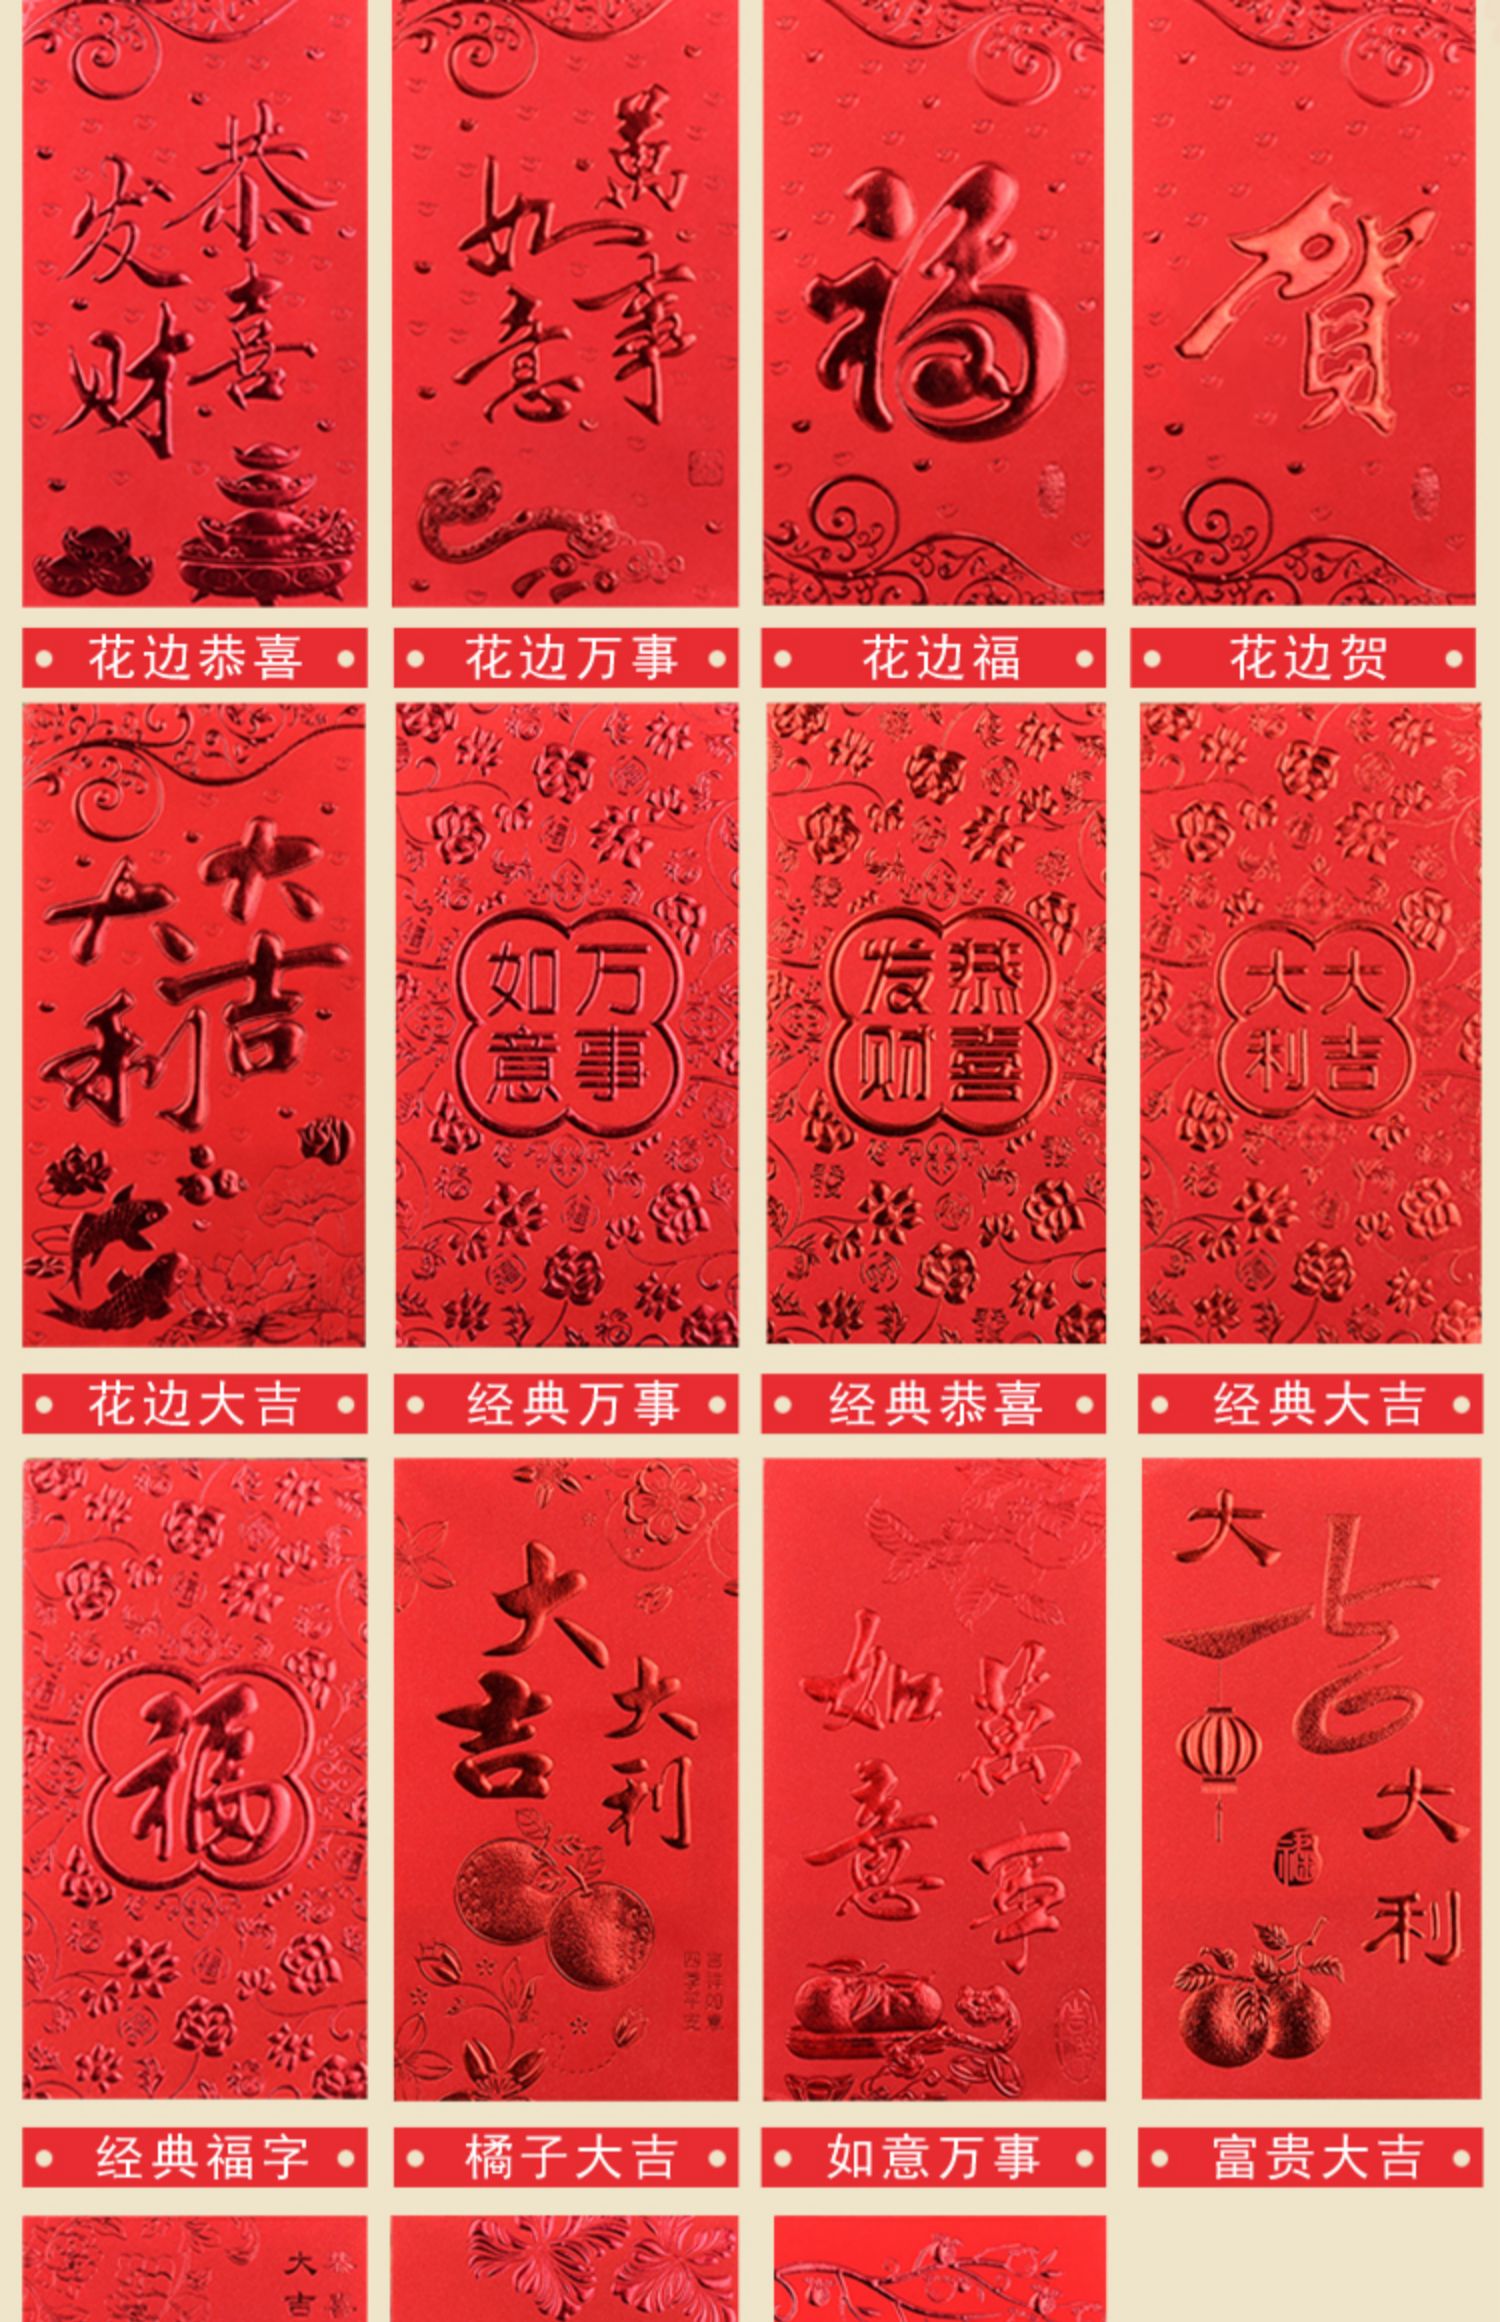 恭喜
发财
萬事
如意
福
賀
花边恭喜
花边万事
花边福
花边贺
大吉
大利
万事
如意
恭喜
发财
大吉
大利
花边大吉
经典万事
经典恭喜
经典大吉
福
大吉
大利
吉祥如意
四季平安
萬事
如意
大吉
大利
福
经典福字
橘子大吉
如意万事
富贵大吉
恭喜
大吉